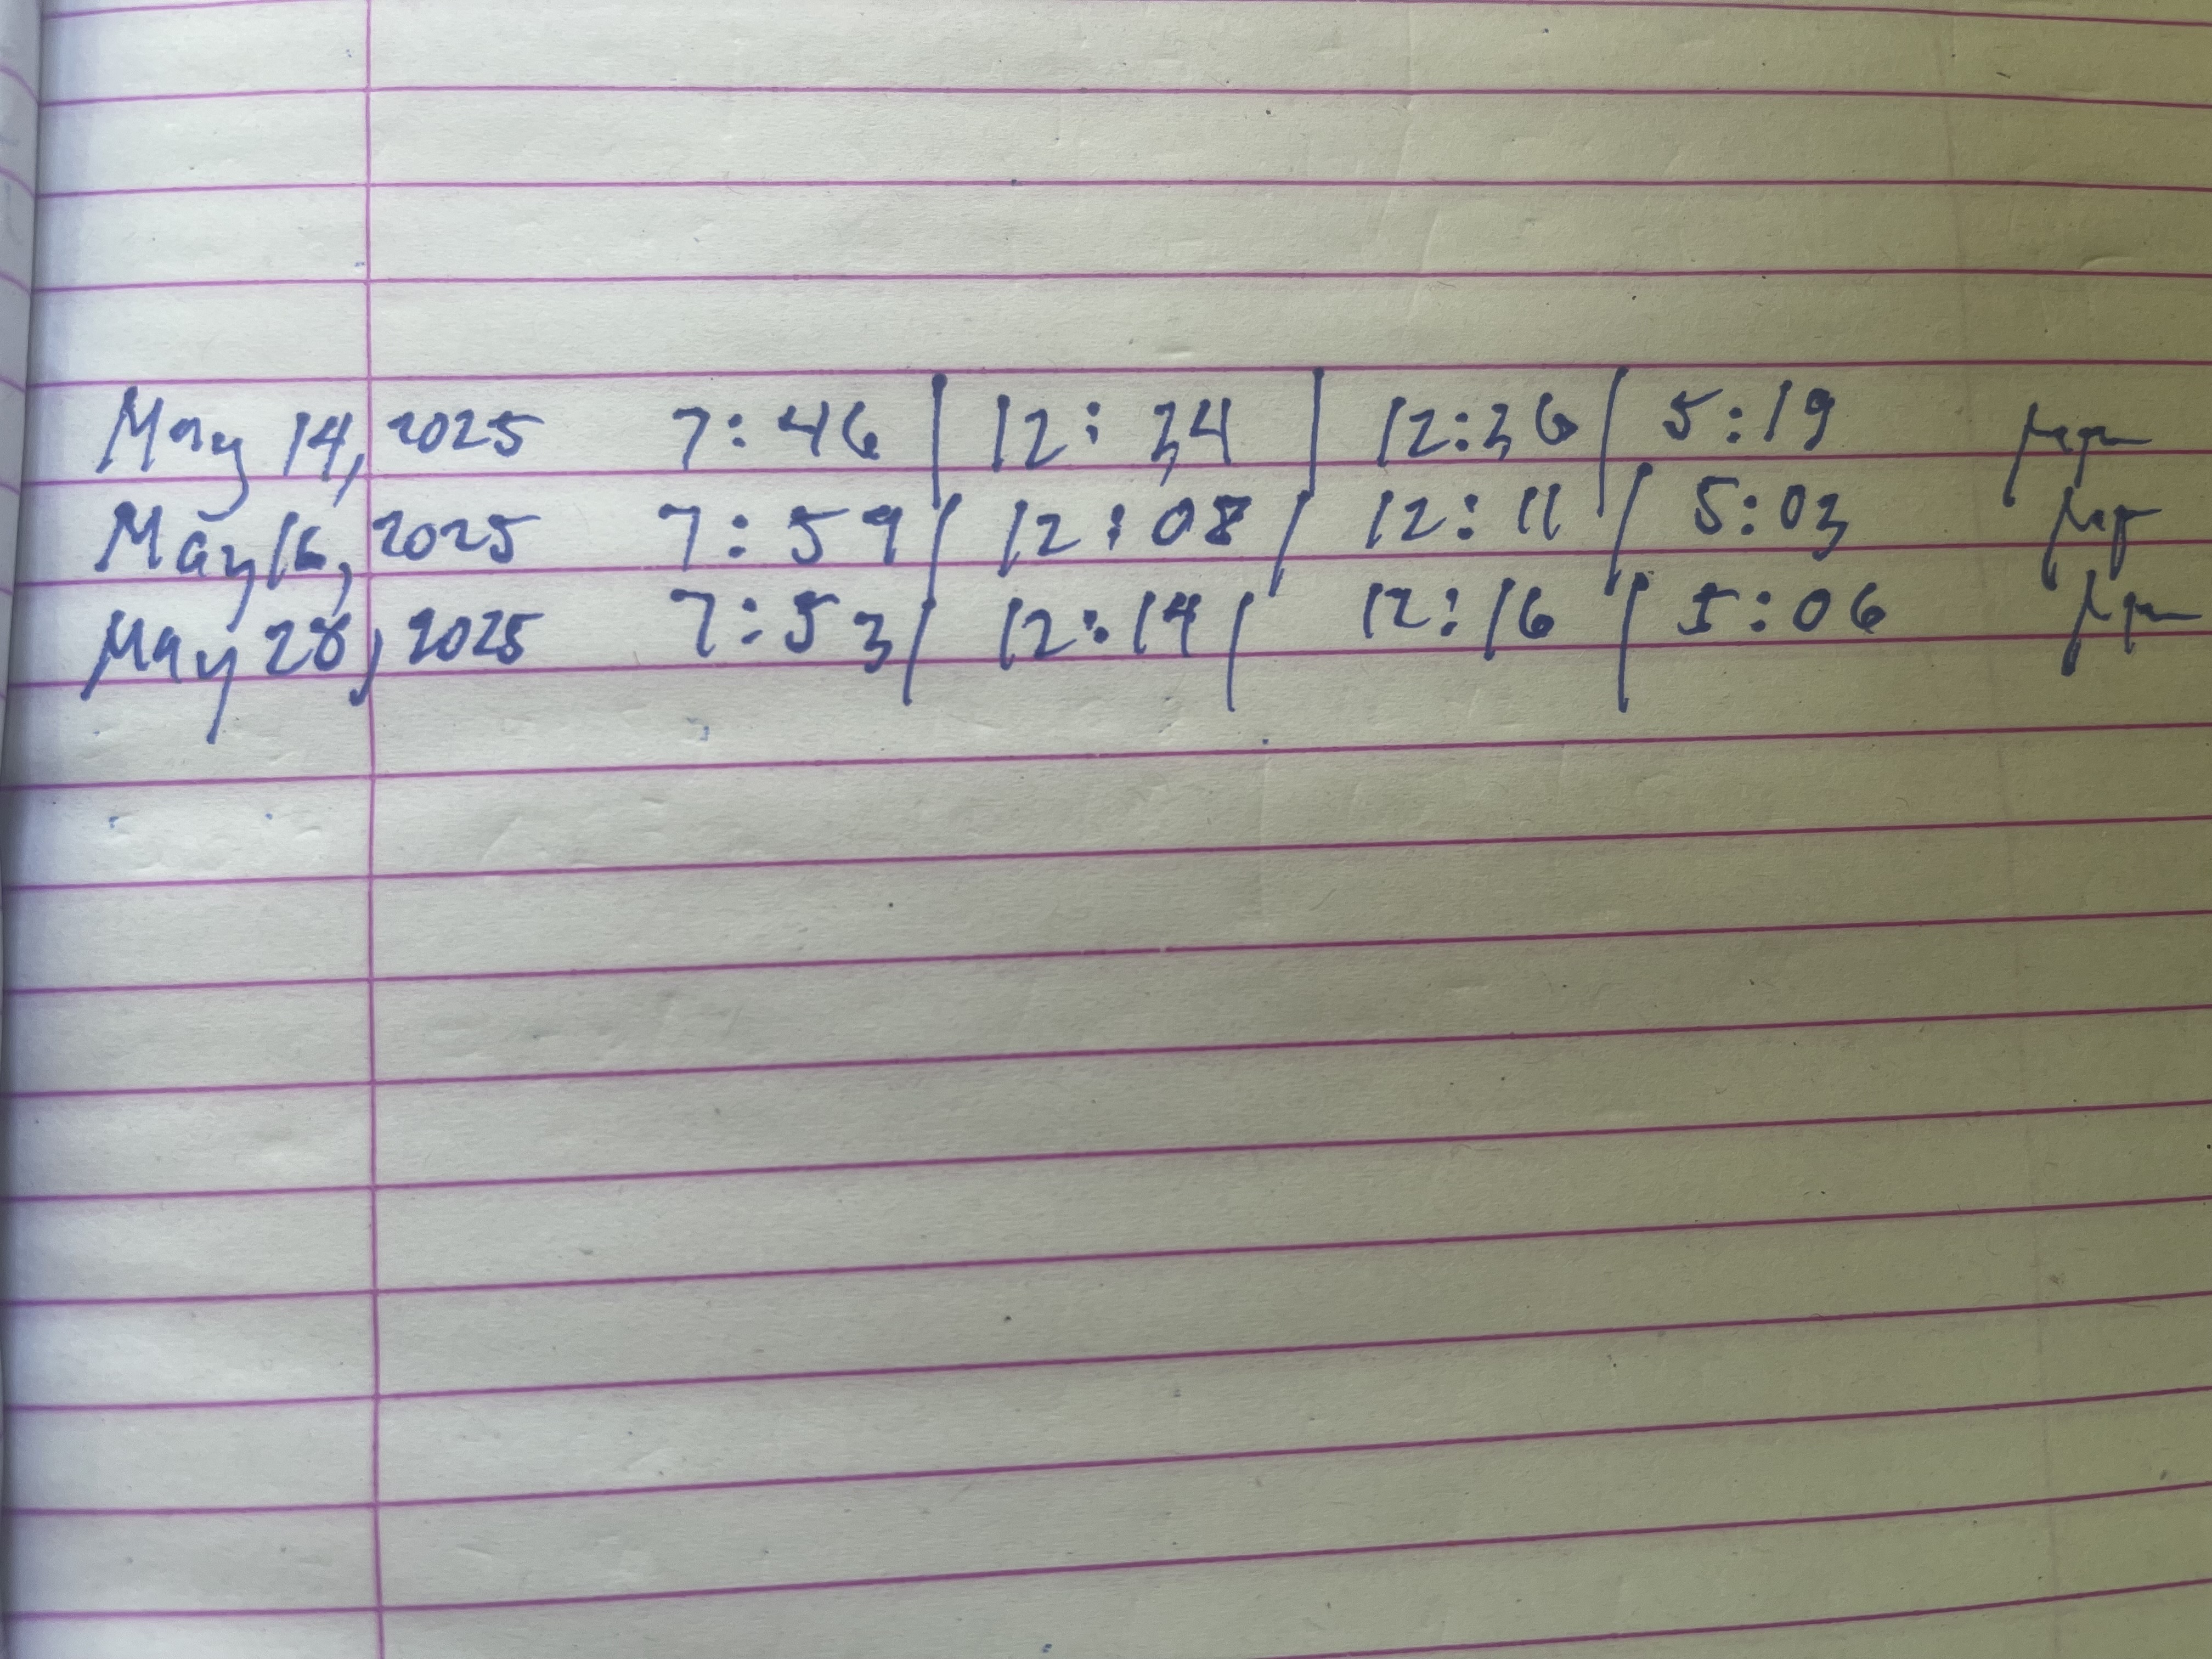 May 14, 2025 7:46 | 12:34 | 12:36 | 5:19
May 16, 2025 7:59 | 12:08 | 12:11 | 5:03
May 28, 2025 7:53 | 12:14 | 12:16 | 5:06